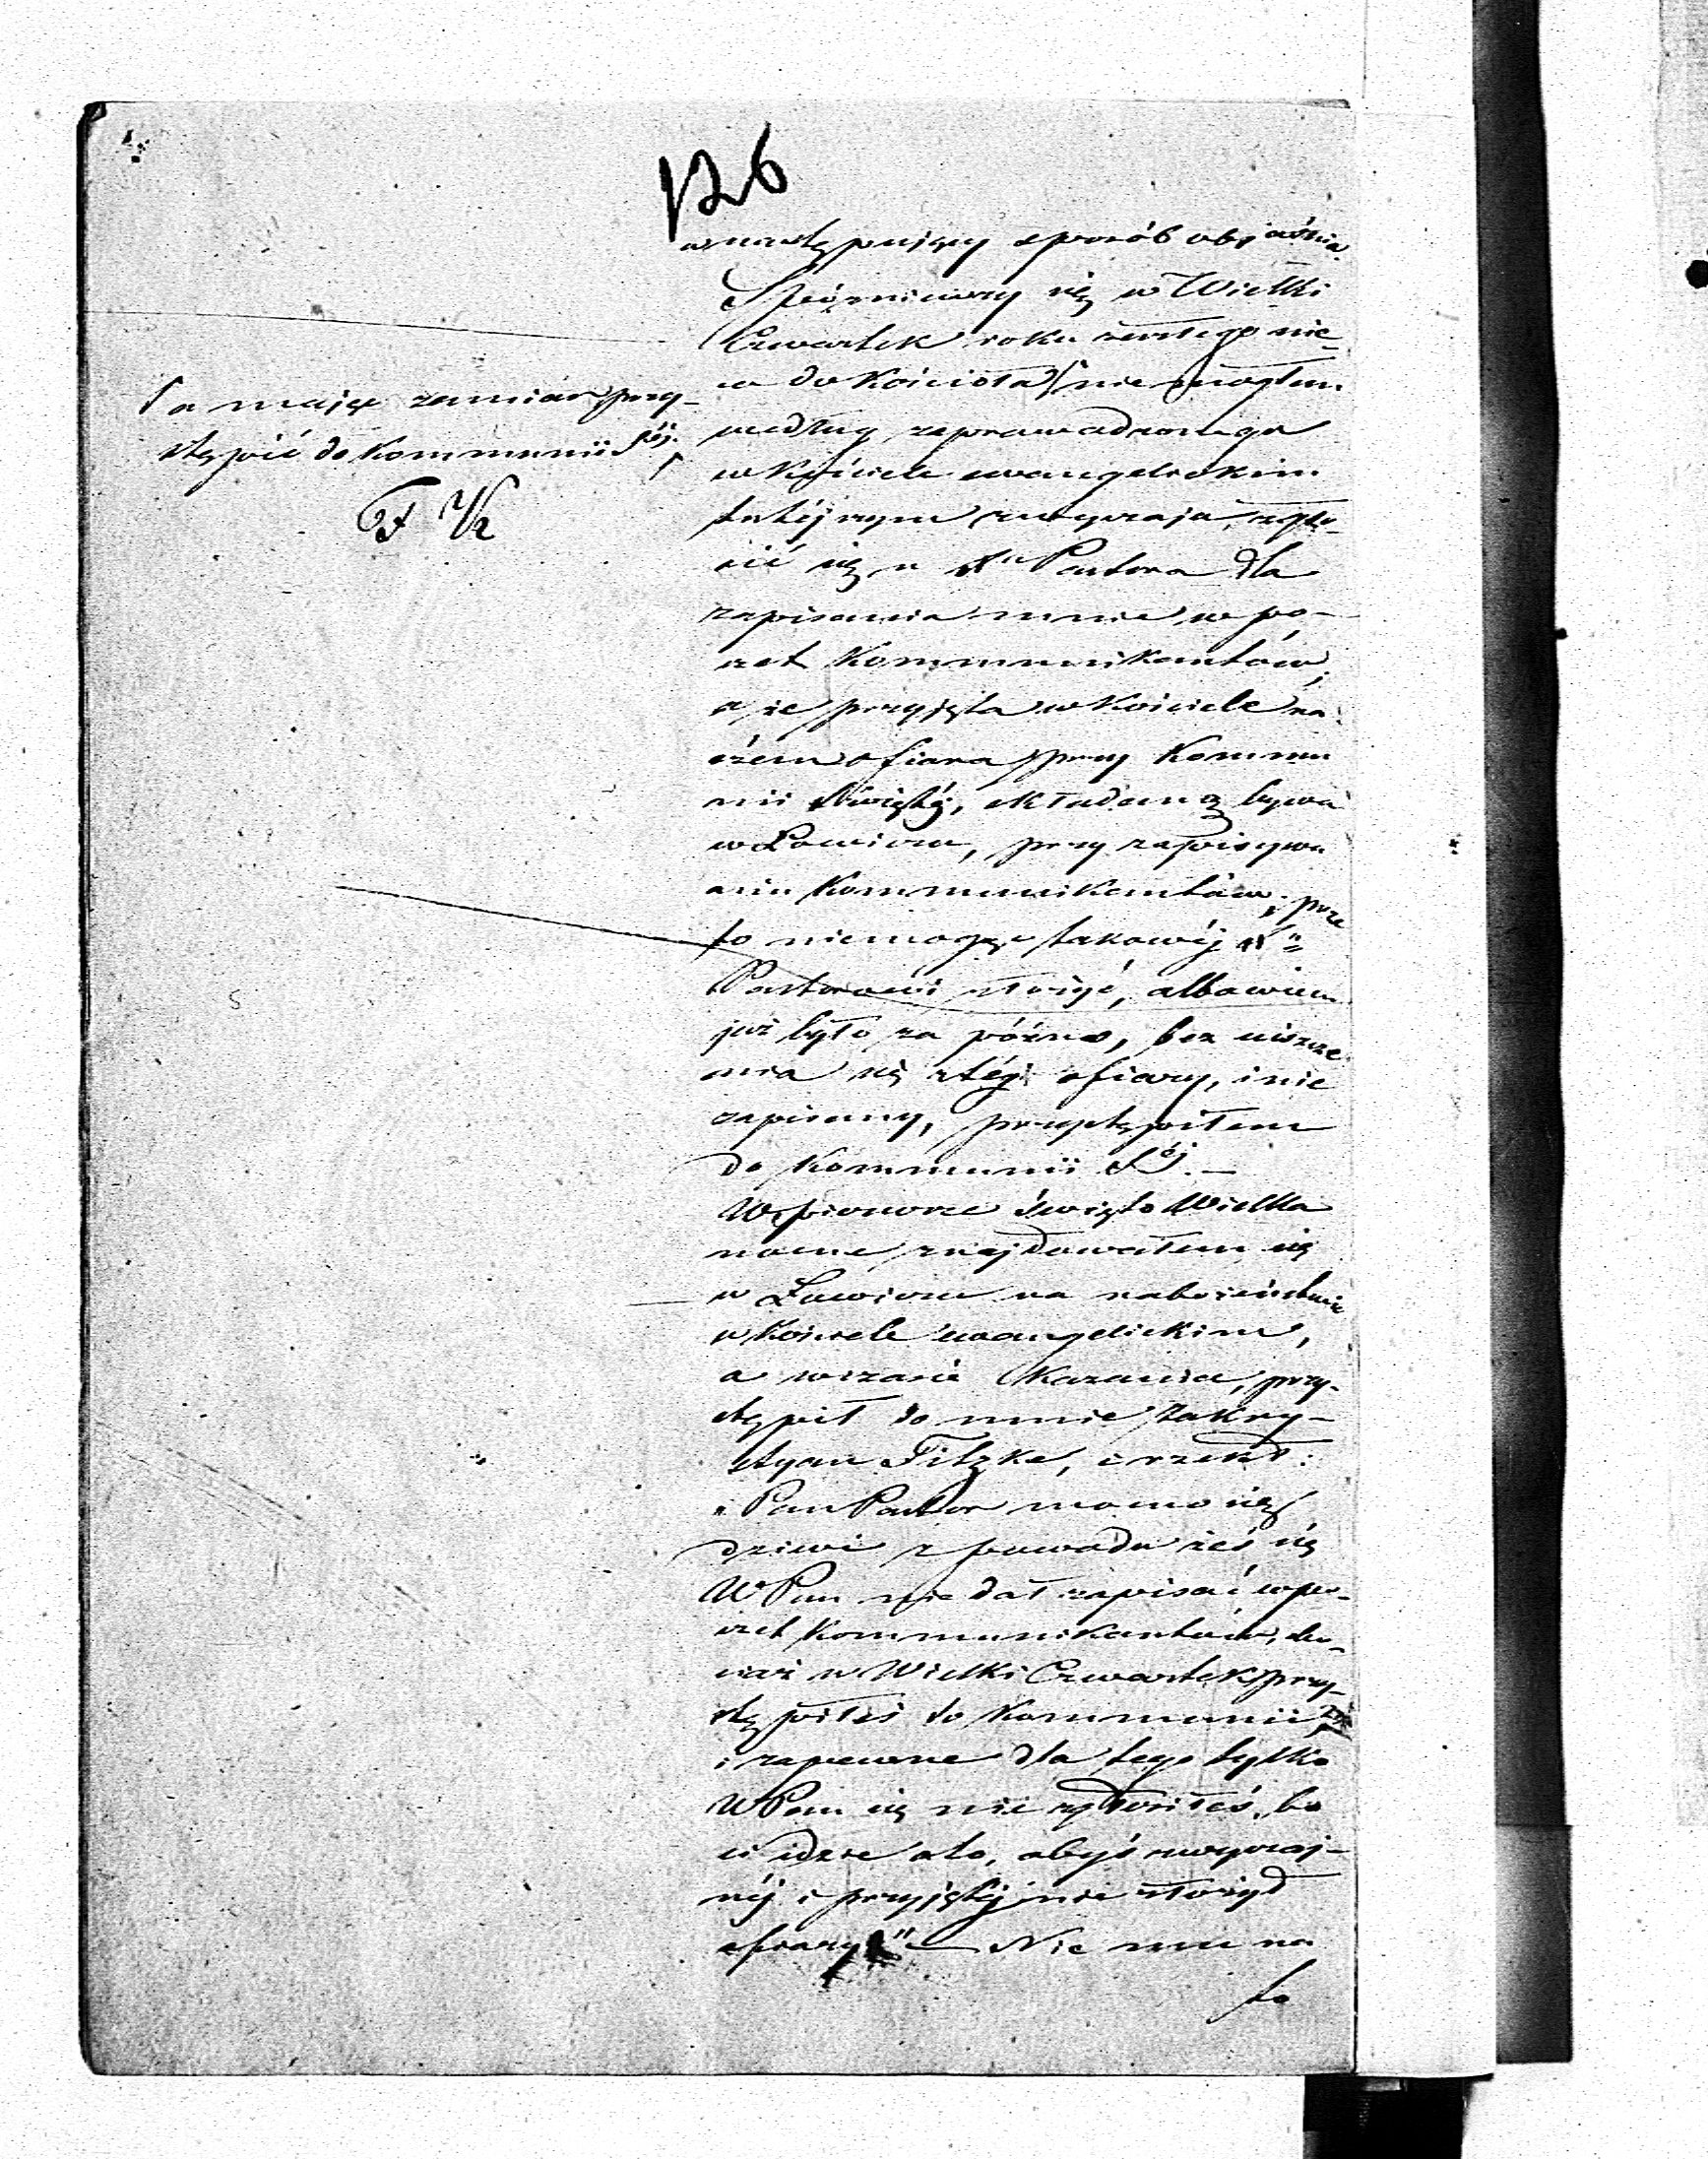 126
w następujący sposób objaśnia
Spóźniwszy się w Wielki
Czwartek roku zeszłego nie
co do Kościoła, nie mogłem
według zaprowadzonego
w Kościele ewangelickim
tutéjszym zwyczaju, zgło-
sić się u Pastora dla
zapisania mnie w po-
czet Kommunikantów;
a że przyjęta w Kościele na
szém ofiara przy Kommu
nii Świętéj, składaną bywa
w Łowiczu, przy zapisywa
niu Kommunikantów; prze
to niemogąc takowéj
Pastorowi złożyć, albowiem
już było za późno, bez uiszcze
nia się z téj ofiary, i nie
zapisany, przystąpiłem
do Kommunii Séj. —
W pierwsze święto Wielka
nocne znajdowałem się
w Łowiczu na nabożeństwie
w Kościele ewangelickim,
a w czasie Kazania, przy-
stąpił do mnie Zakry-
styan Titzke, i rzekł:
"Pan Pastor mocno się
dziwi z powodu żeś się
WPan nie dał zapisać w po-
czet Kommunikantów, cho-
ciaż w Wielki Czwartek przy-
stąpiłeś do Kommunii
i zapewne dla tego tylko
WPan się nie zgłosiłeś, bo
ci idzie o to, abyś zwyczaj-
néj i przyjętéj nie złożył
ofiary" — Nic mu na
to
a mając zamiar przy-
stąpić do Kommunii Séj.